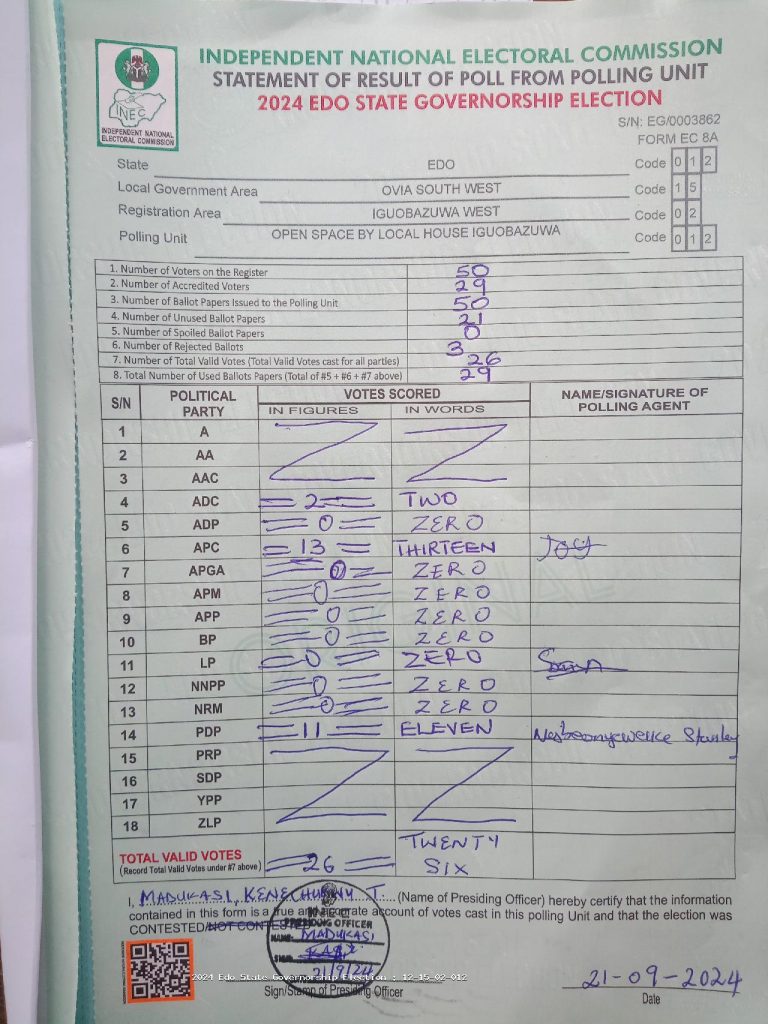 INDEPENDENT NATIONAL ELECTORAL COMMISSION
STATEMENT OF RESULT OF POLL FROM POLLING UNIT
2024 EDO STATE GOVERNORSHIP ELECTION
INEC
INDEPENDENT NATIONAL
ELECTORAL COMMISSION
S/N: EG/0003862
FORM EC 8A
State EDO Code 0 1 2
Local Government Area OVIA SOUTH WEST Code 1 5
Registration Area IGUOBAZUWA WEST Code 0 2
Polling Unit OPEN SPACE BY LOCAL HOUSE IGUOBAZUWA Code 0 1 2
1. Number of Voters on the Register 50
2. Number of Accredited Voters 29
3. Number of Ballot Papers Issued to the Polling Unit 50
4. Number of Unused Ballot Papers 21
5. Number of Spoiled Ballot Papers 0
6. Number of Rejected Ballots 3
7. Number of Total Valid Votes (Total Valid Votes cast for all parties) 26
8. Total Number of Used Ballots Papers (Total of #5 + #6 + #7 above) 29
S/N POLITICAL PARTY VOTES SCORED NAME/SIGNATURE OF POLLING AGENT
IN FIGURES IN WORDS
1 A
2 AA
3 AAC
4 ADC 2 TWO
5 ADP 0 ZERO
6 APC 13 THIRTEEN Joy
7 APGA 0 ZERO
8 APM 0 ZERO
9 APP 0 ZERO
10 BP 0 ZERO
11 LP 0 ZERO
12 NNPP 0 ZERO
13 NRM 0 ZERO
14 PDP 11 ELEVEN Stanley
15 PRP
16 SDP
17 YPP
18 ZLP
TOTAL VALID VOTES 26 TWENTY SIX
(Record Total Valid Votes under #7 above)
I, MADUKASI, KENECHUKWU T. (Name of Presiding Officer) hereby certify that the information
contained in this form is a true and accurate account of votes cast in this polling Unit and that the election was
CONTESTED/NOT CONTESTED
INEC
PRESIDING OFFICER
NAME: MADUKASI
SIGN
21/9/24
2024 Edo State Governorship Election : 12-15-02-012
21-09-2024
Sign/Stamp of Presiding Officer
Date